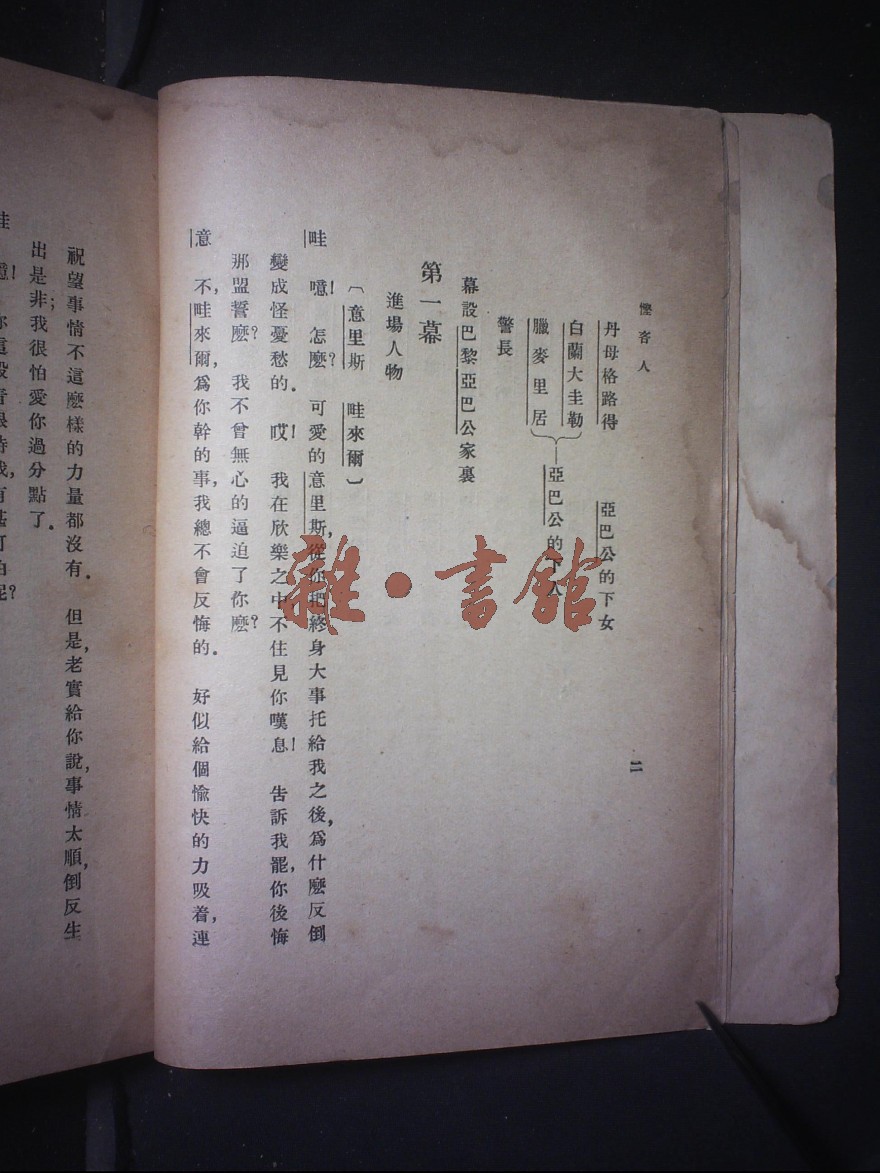 慳吝人
二
丹母格路得　亞巴公的下女
白蘭大圭勒
臘麥里居
亞巴公的下人
警長
幕設巴黎亞巴公家裏
第一幕
進場人物
〔意里斯　哇來爾〕
哇　噫！怎麽？可愛的意里斯，從你把終身大事托給我之後，爲什麽反倒
變成怪憂愁的。哎！我在欣樂之中不住見你嘆息！告訴我罷，你後悔
那盟誓麽？我不曾無心的逼迫了你麽？
意　不，哇來爾，爲你幹的事，我總不會反悔的。好似給個愉快的力吸着，連
祝望事情不這麽樣的力量都沒有。但是，老實給你說，事情太順，倒反生
出是非；我很怕愛你過分點了。
哇　噫！你這般看待我，有甚可怕呢？
雜·書館